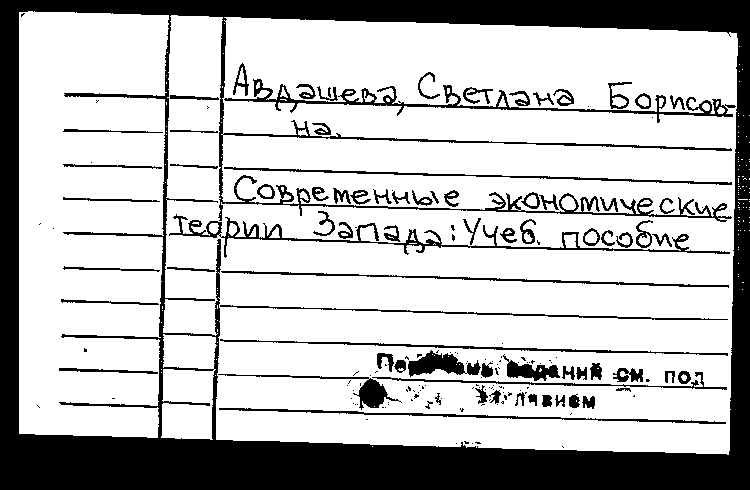 Авдашева, Светлана Борисов-
на.
Современные экономические
теории Запада: Учеб. пособие
Перечень изданий см. под
заглавием